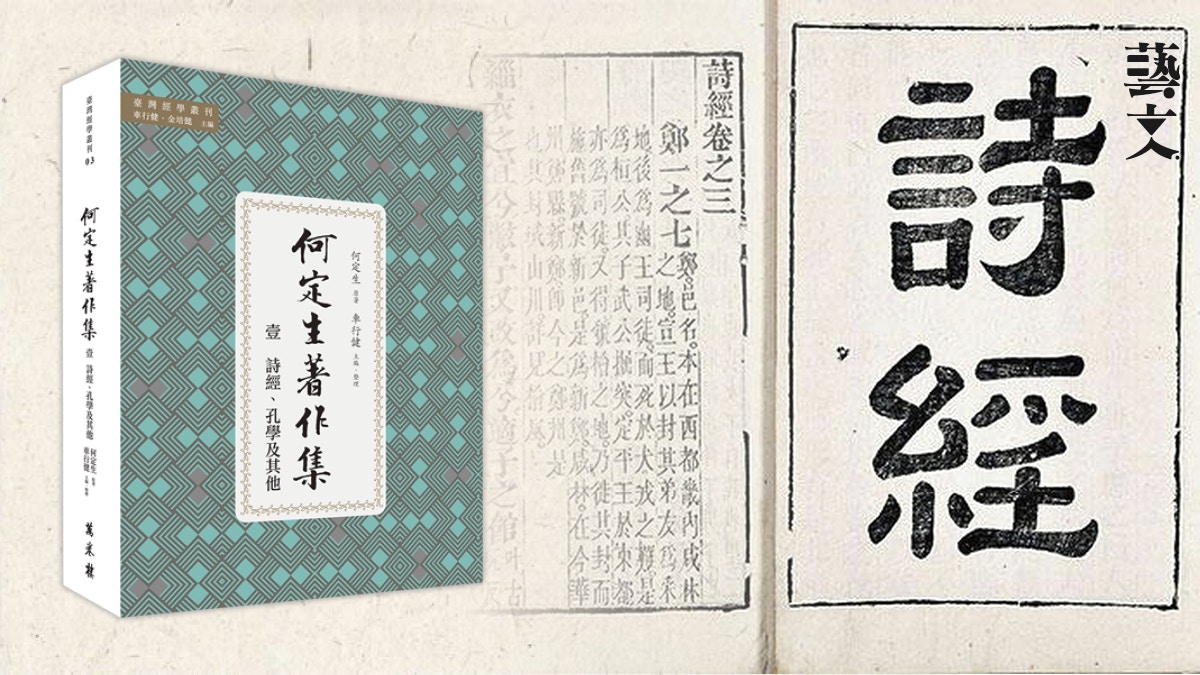 臺灣經學叢刊
車行健・金培懿 主編
何定生 原著 車行健 主編・整理
何定生著作集
壹 詩經、孔學及其他
臺灣經學叢刊 03
何定生著作集
壹 詩經、孔學及其他
何定生 原著
車行健 主編・整理
萬卷樓
詩經
藝文
詩經卷之三
鄭一之七
鄭。邑名。本在西都畿內咸林
之地。宣王以封其弟友爲采
地。後爲幽王司徒。而死於犬戎之難。是
爲桓公。其子武公掘突。定平王於東都
亦爲司徒。又得虢檜之地。乃徙其封。而
施舊號於新邑。是爲新鄭。咸林。在今華
州鄭縣。新鄭。即今之鄭州是